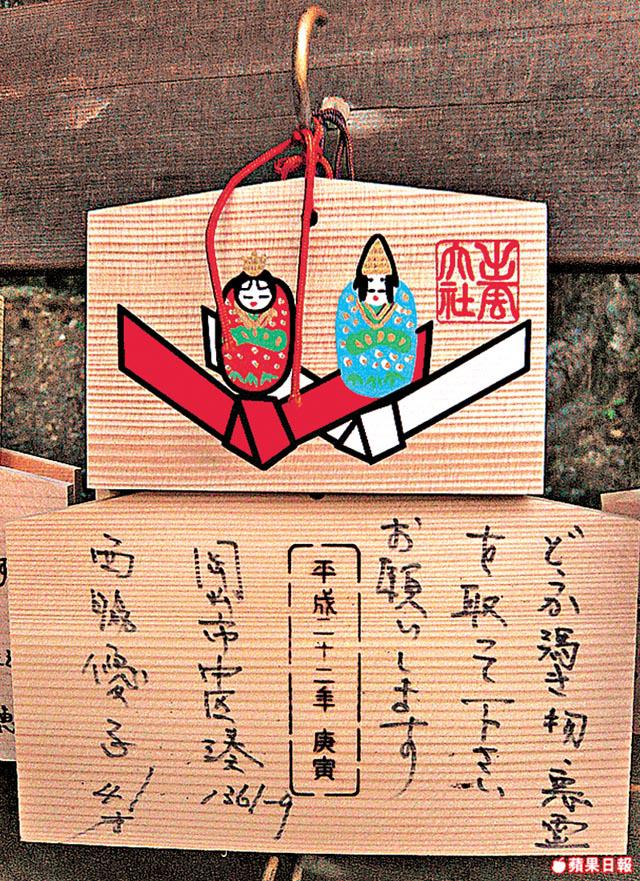 出雲
大社
どうか渇き物、悪霊
を取って下さい
お願いします
平成二十二年 庚寅
市中区湊 1361-9
西脇優子 41才
蘋果日報